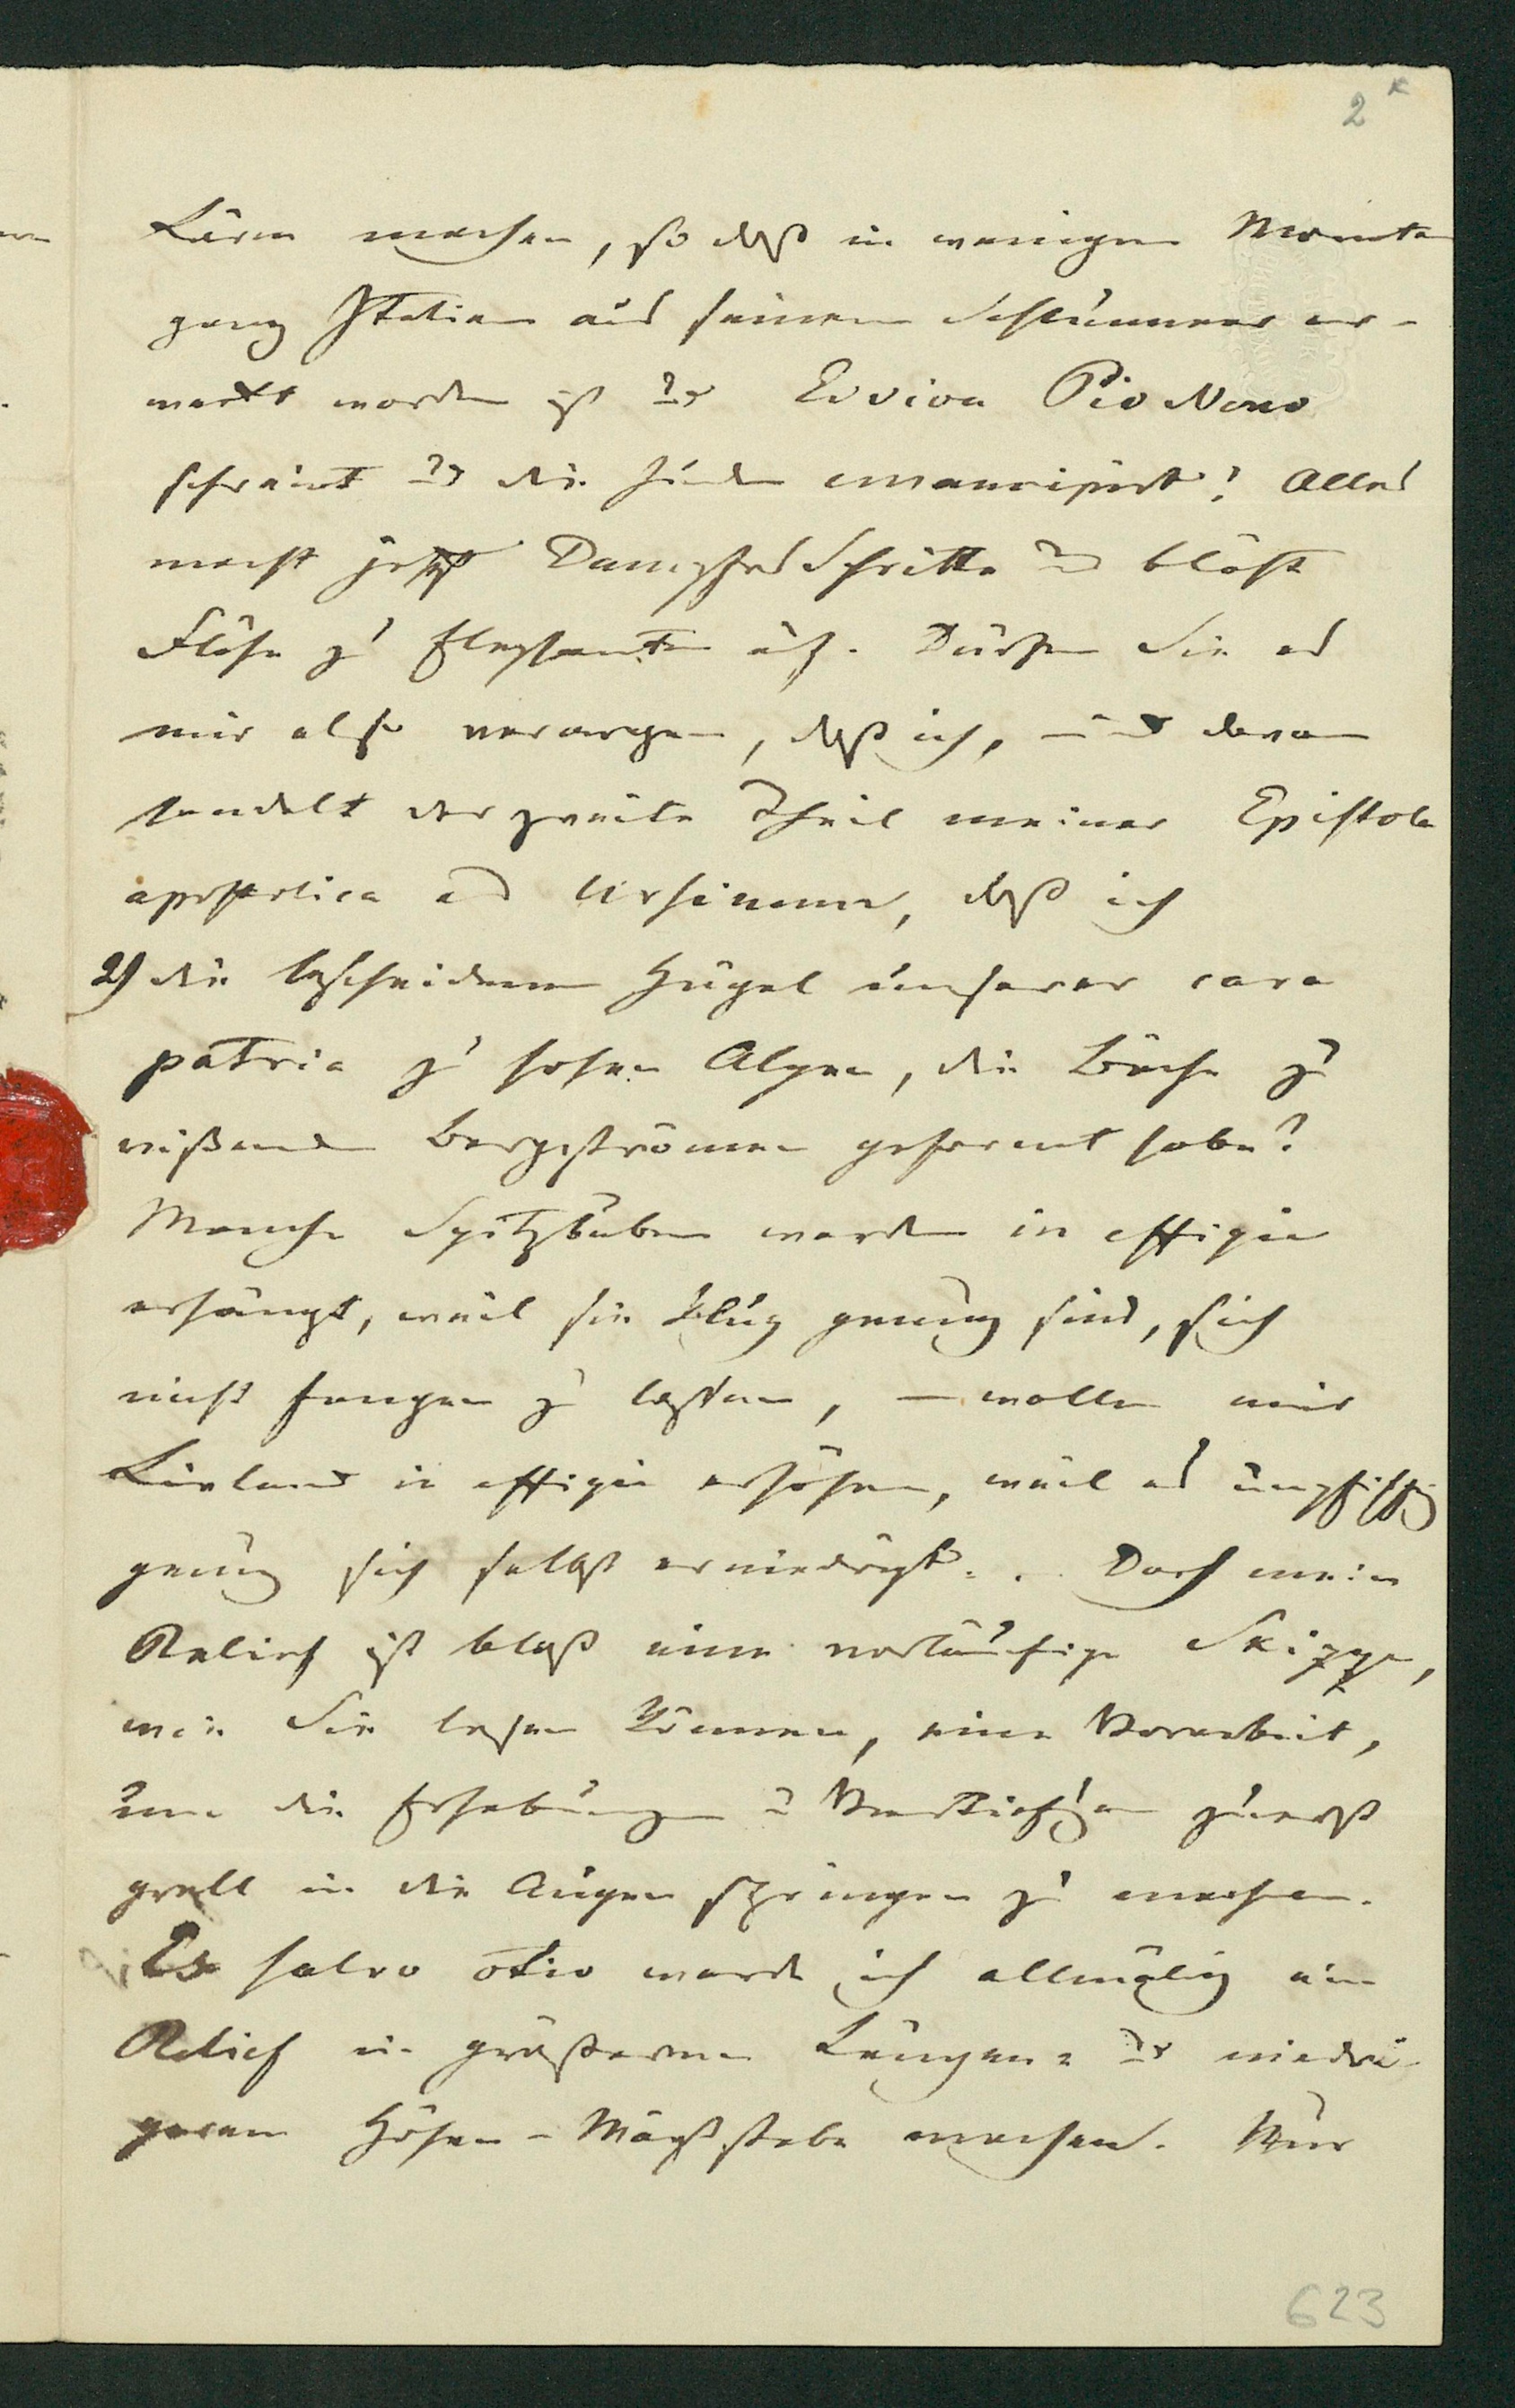 2
Lärm machen, so daß in wenigen Monaten
ganz Italien aus seinem Schlummer er-
weckt worden ist und Evviva Pio Nono
schreiet und die Juden emancipirt! Alles
macht jetzt Dampfes Schritte und bläst
Flöhe zu Elephanten auf. Dürfen Sie es
mir also verargen, daß ich, und davon
handelt der zweite Theil meiner Epistola
apostolica ad Ursinum, daß ich
2) die bescheidenen Hügel unserer cara
patria zu hohen Alpen, die Bäche zu
reißenden Bergströmen geformt habe?
Manche Spitzbuben werden in effigie
erhängt, weil sie klug genug sind, sich
nicht fangen zu lassen, – wollen wir
Livland in effigie erhöhen, weil es unpfiffig
genug sich selbst erniedrigt. . Doch mein
Relief ist bloß eine vorläufige Skizze,
wie Sie lesen können, eine Vorarbeit,
um die Erhebungen u Vertiefungen zuerst
grell in die Augen springen zu machen.
Es salvo otio werde ich allmälig ein
Relief in größerem Längen- und niedri-
geren Höhen-Maaßstabe machen. Nur
623